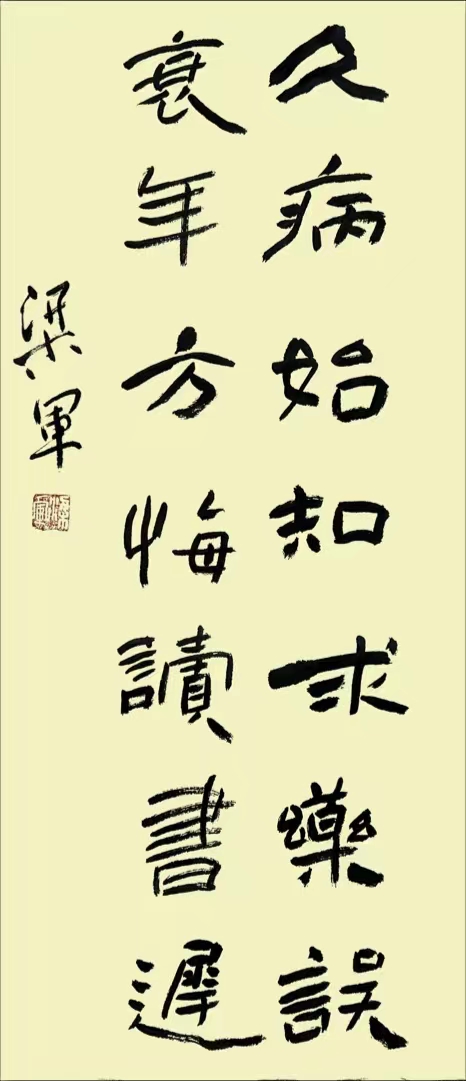 久病始知求藥誤
衰年方悔讀書遲
梁軍